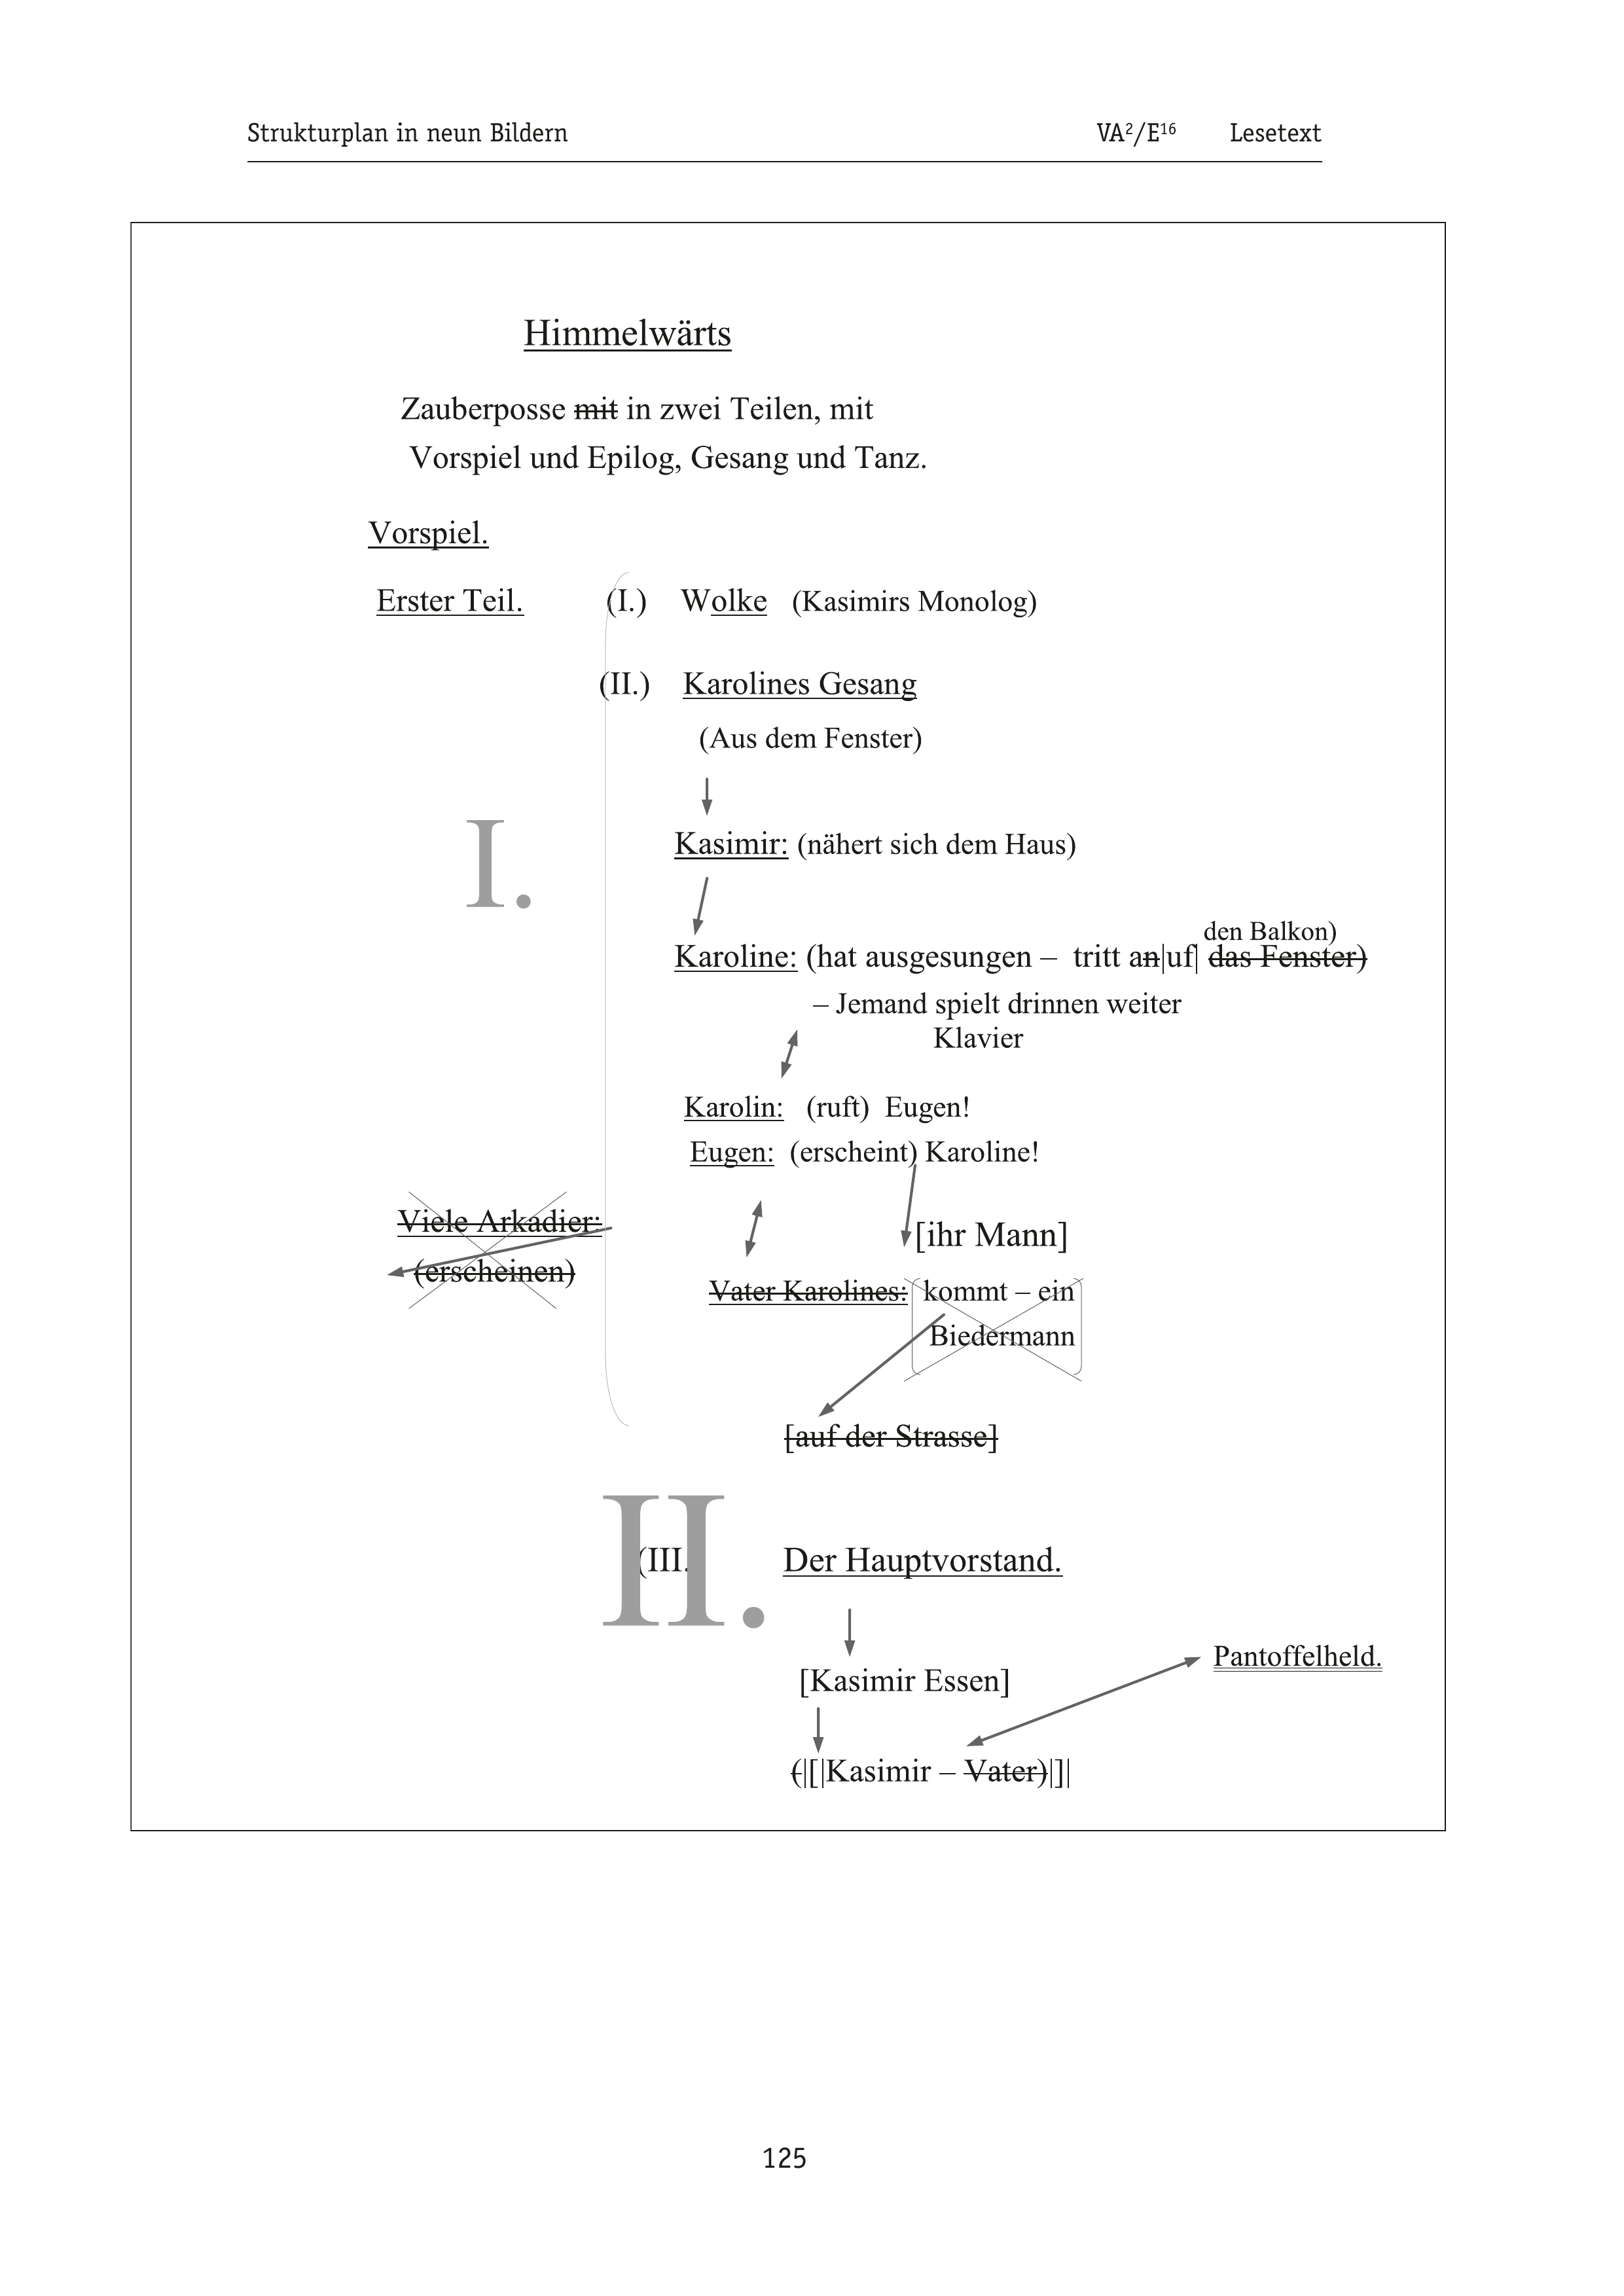 Strukturplan in neun Bildern VA²/E¹⁶ Lesetext
Himmelwärts
Zauberposse mit in zwei Teilen, mit
Vorspiel und Epilog, Gesang und Tanz.
Vorspiel.
Erster Teil. (I.) Wolke (Kasimirs Monolog)
(II.) Karolines Gesang
(Aus dem Fenster)
I.
Kasimir: (nähert sich dem Haus)
den Balkon)
Karoline: (hat ausgesungen – tritt an|uf| das Fenster)
– Jemand spielt drinnen weiter
Klavier
Karolin: (ruft) Eugen!
Eugen: (erscheint) Karoline!
Viele Arkadier:
[ihr Mann]
(erscheinen)
Vater Karolines: kommt – ein
Biedermann
[auf der Strasse]
II.
(III. Der Hauptvorstand.
Pantoffelheld.
[Kasimir Essen]
(|[|Kasimir – Vater)|]|
125